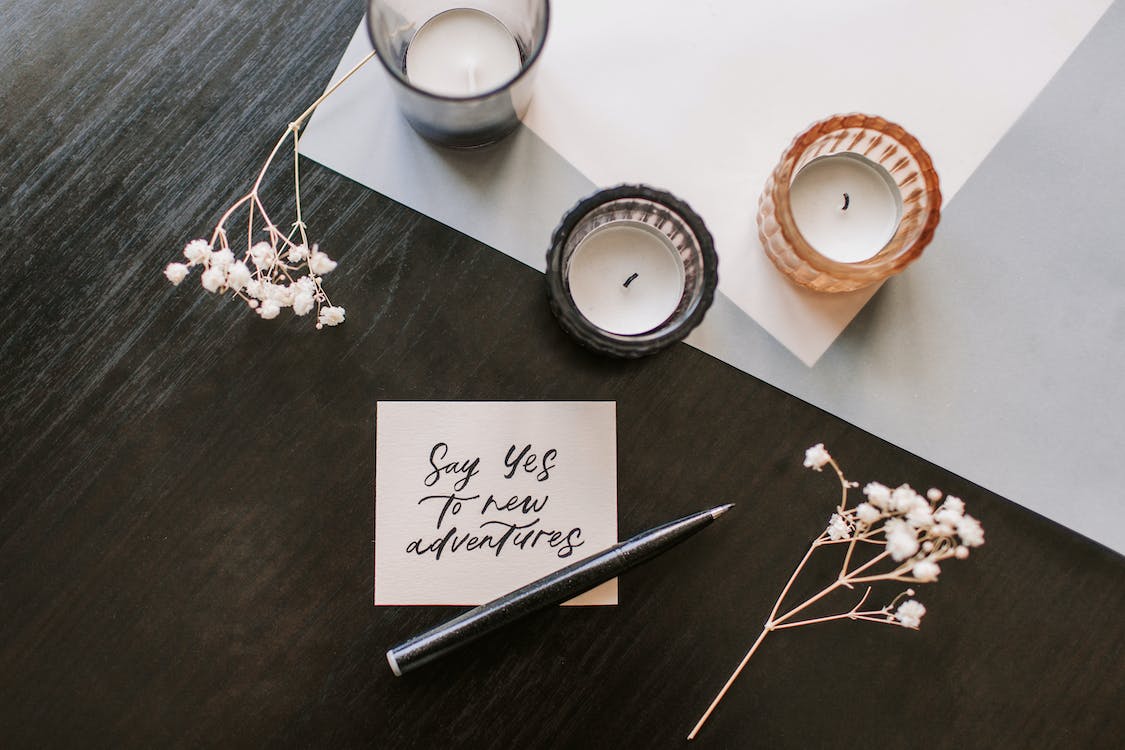 Say Yes
To new
adventures